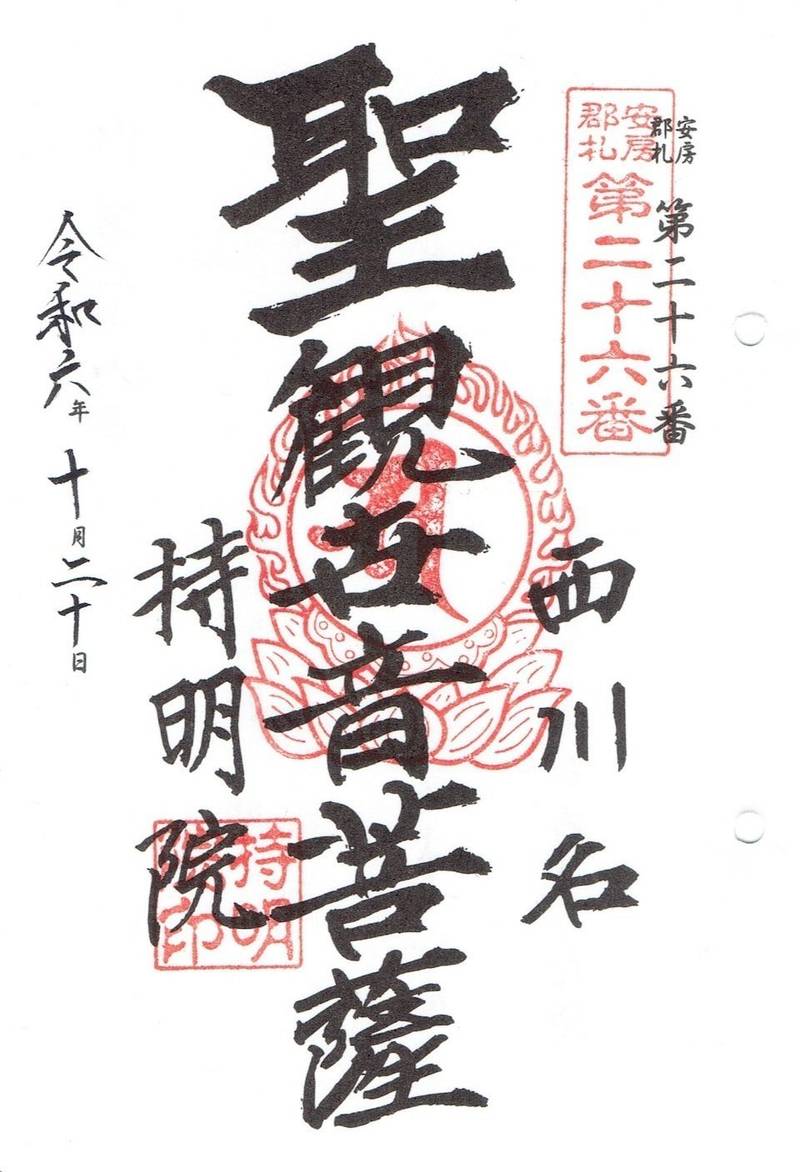 安房郡札 第二十六番
安房郡札 第二十六番
西川名
聖観世音菩薩
持明院
持明院印
令和六年 十月二十日